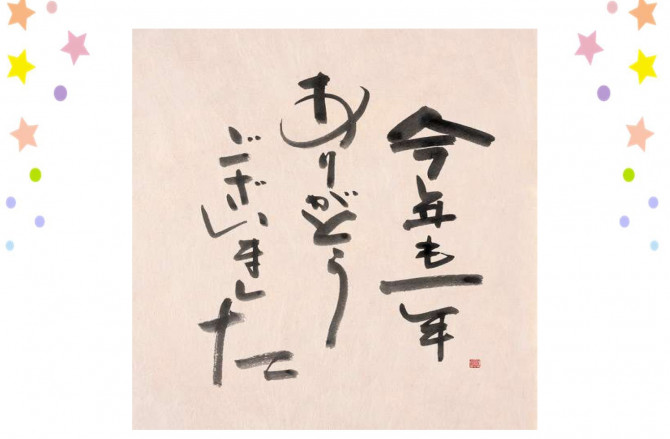 今年も一年
ありがとう
ございました